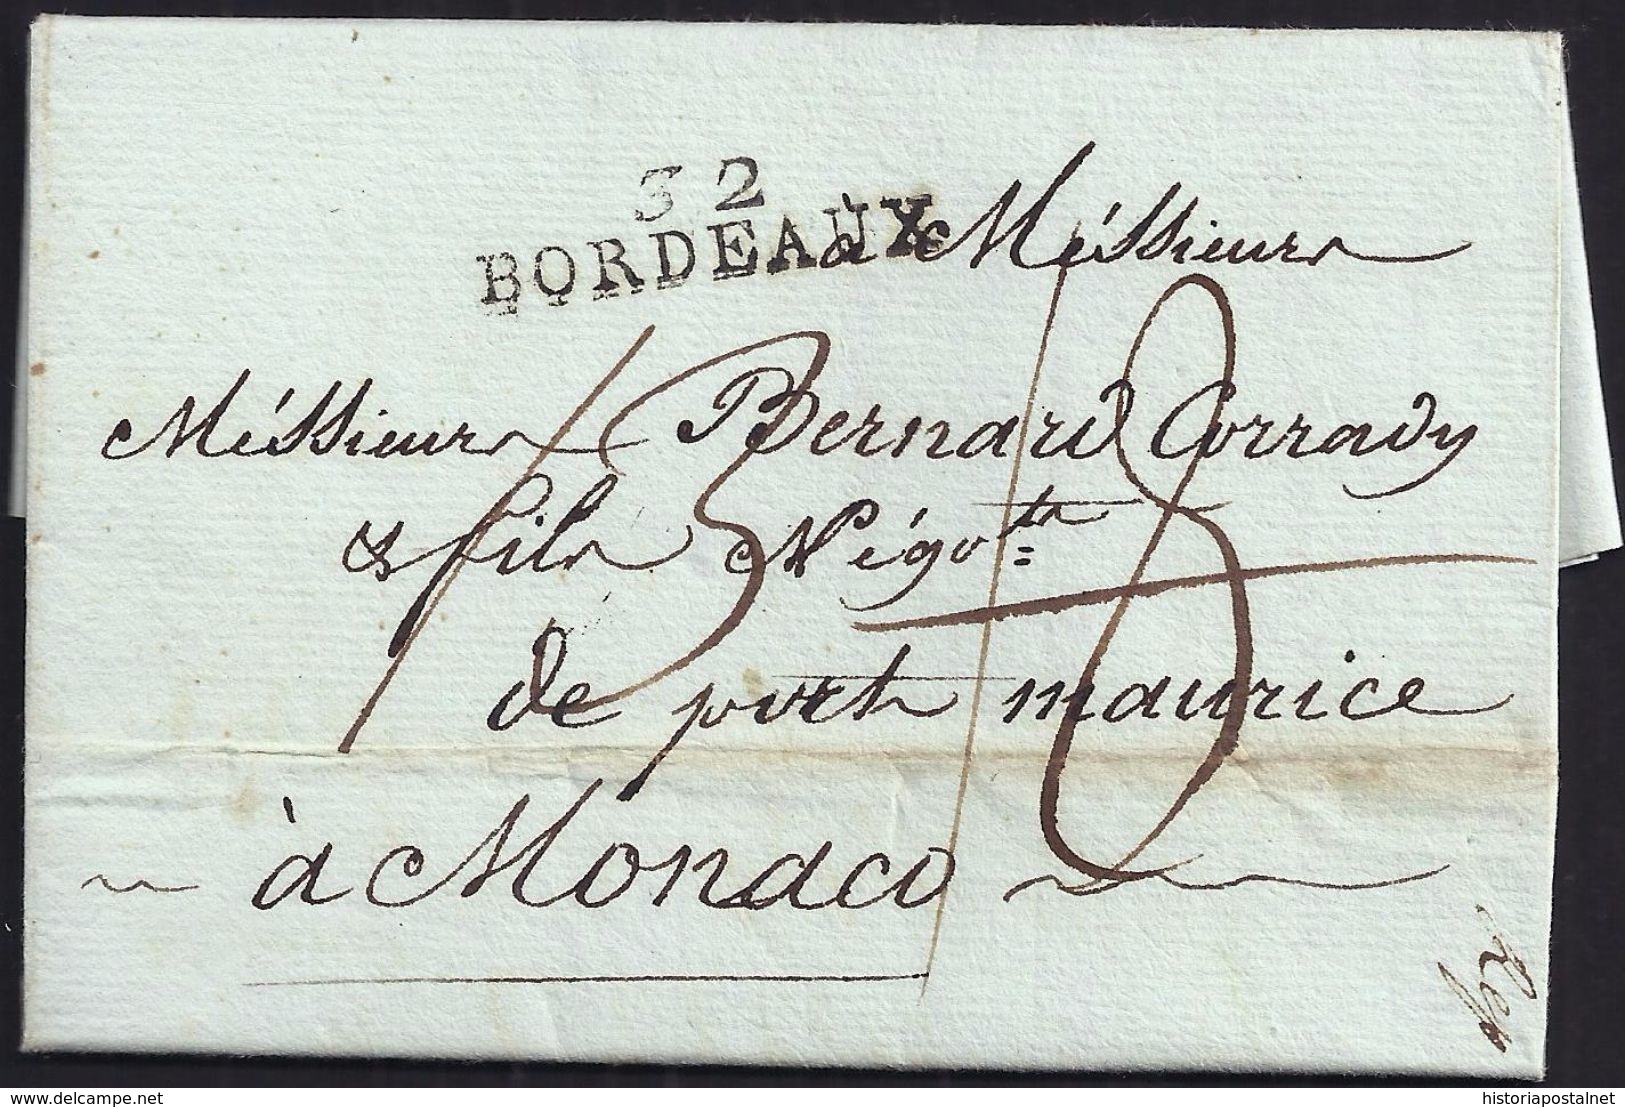 32
BORDEAUX
à Méssieurs
Méssieurs Bernard Corrady
& fils Négots
de port maurice
à Monaco
delcampe.net
historiapostalnet